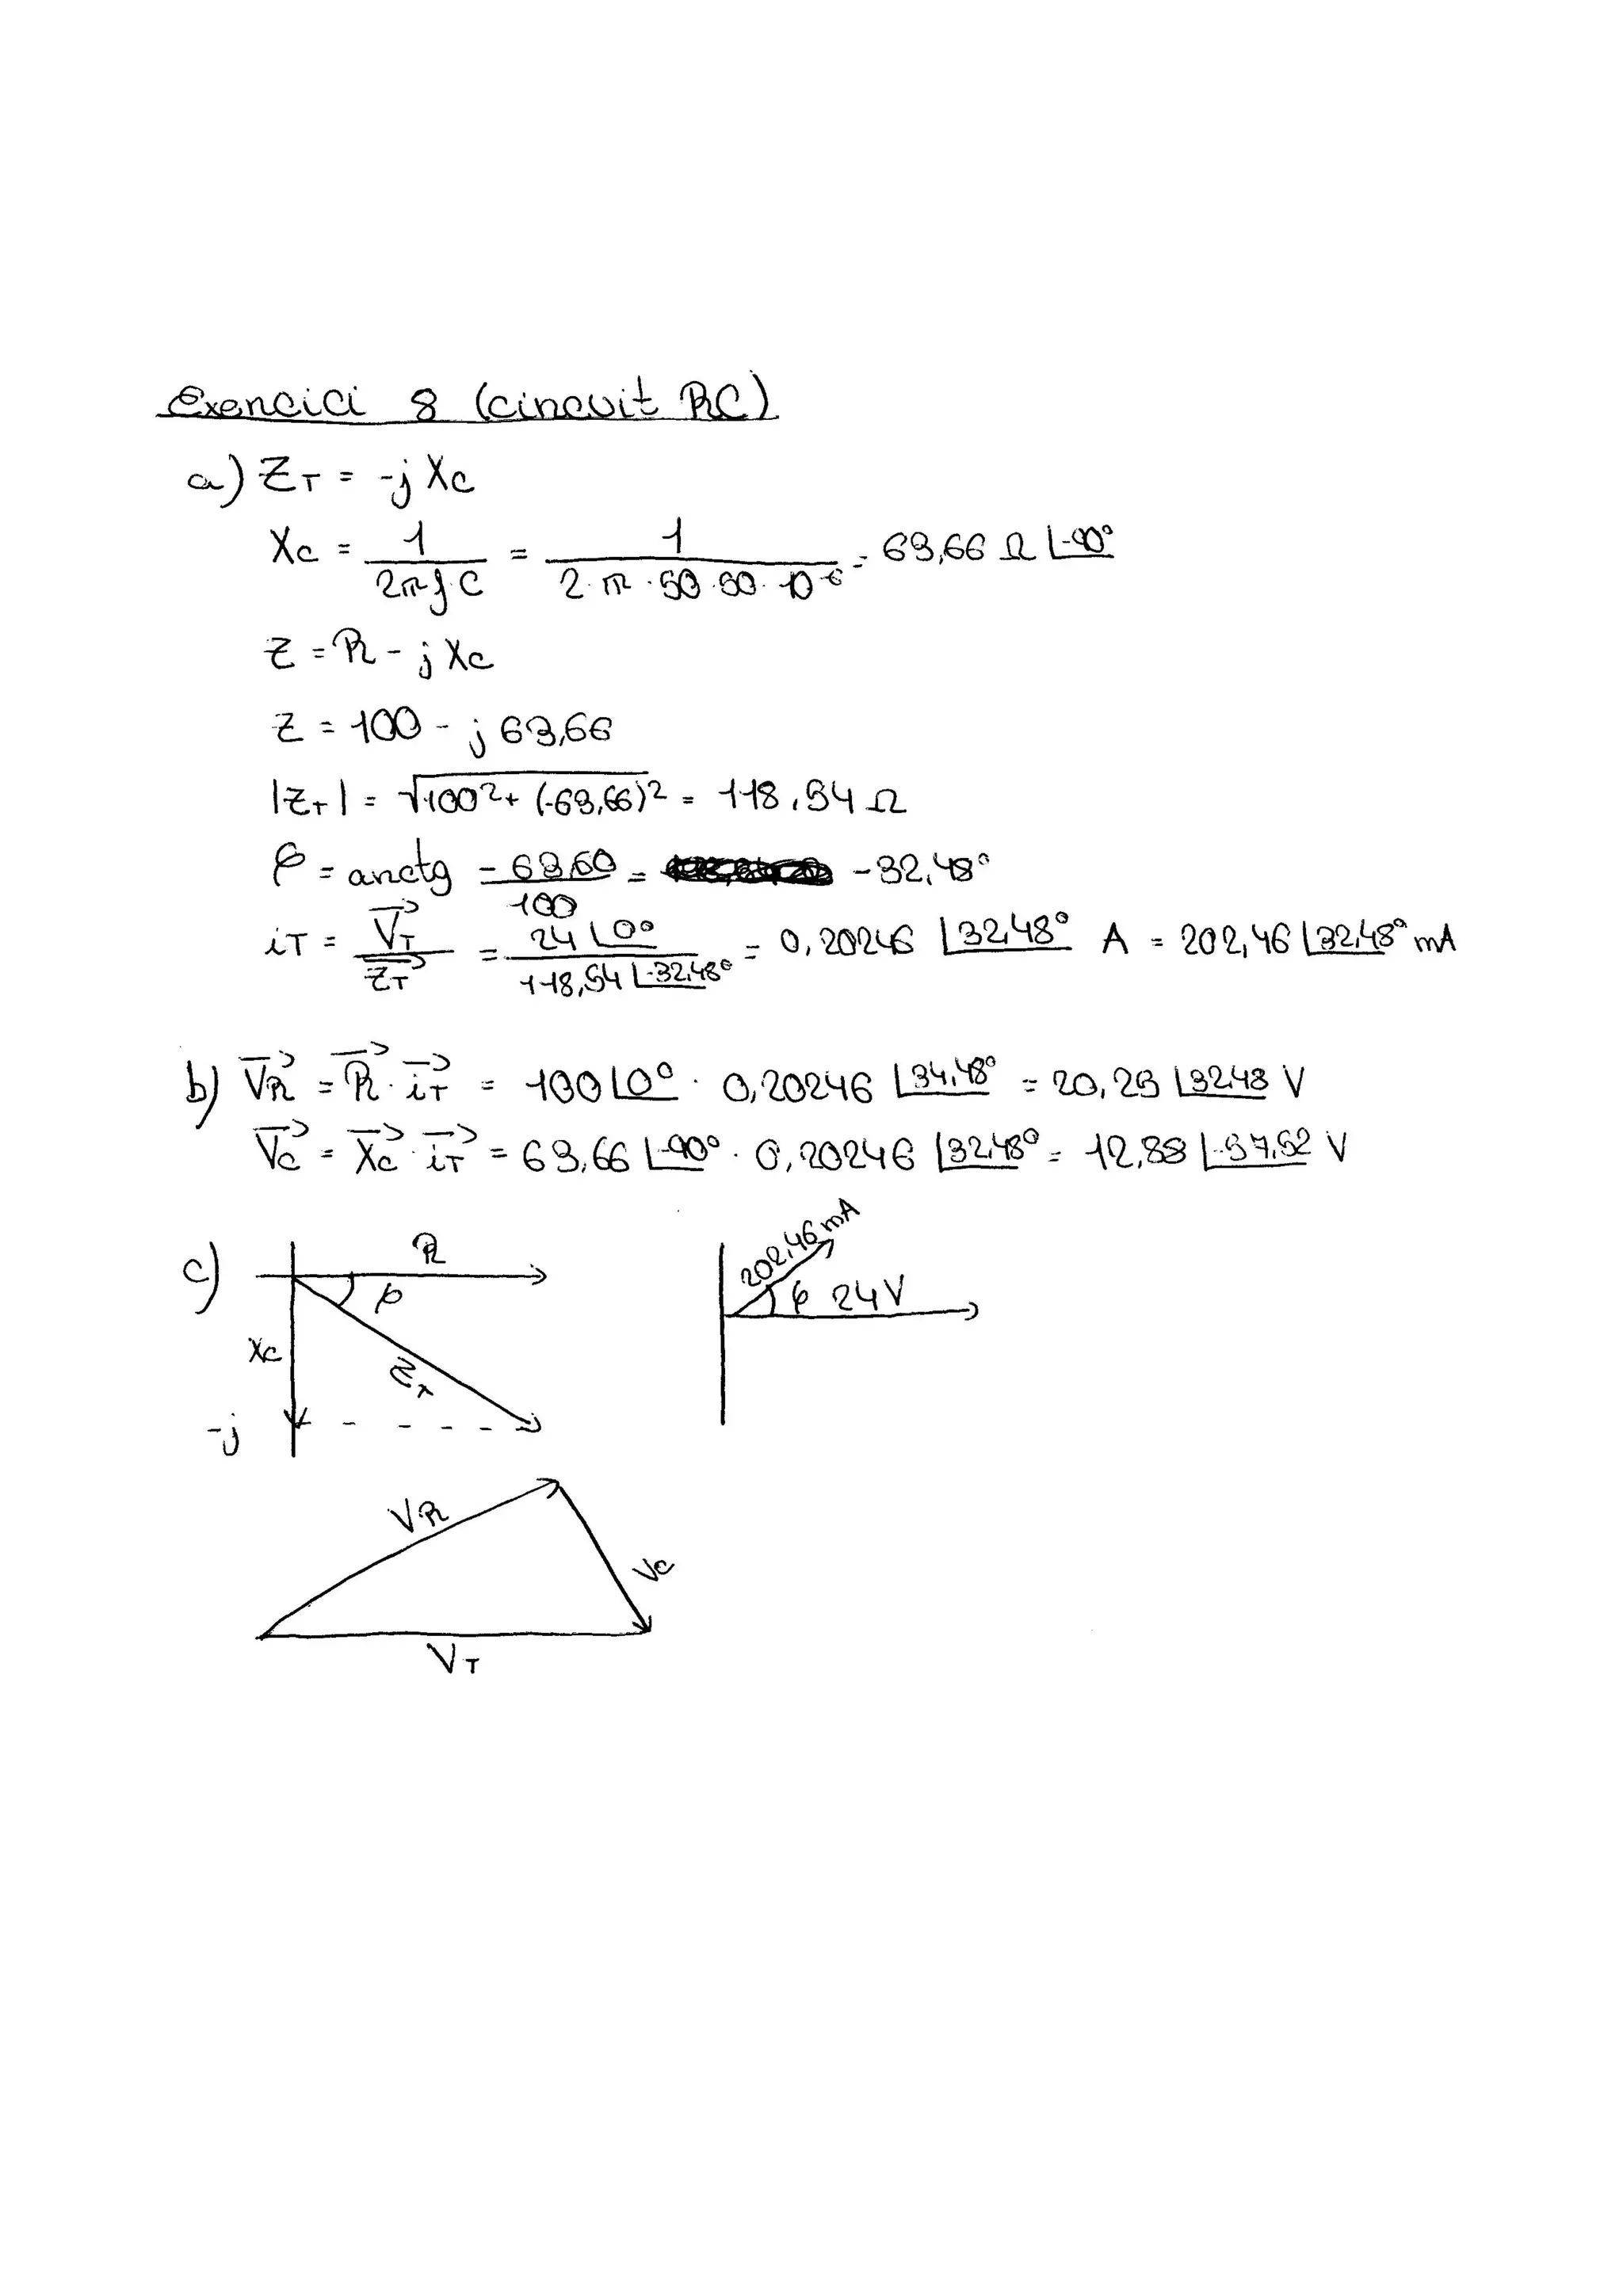 Exercici 8 (circuit RC)
a) ZT = -j Xc
Xc = 1 / 2πf·C = 1 / 2·π·50·50·10^-6 = 63,66 Ω ∟-90°
Z = R - j Xc
Z = 100 - j 63,66
|ZT| = √100² + (-63,66)² = 118,54 Ω
φ = arctg -63,60 / 100 = -32,48°
iT = VT / ZT = 24 ∟0° / 118,54 ∟-32,48° = 0,20246 ∟32,48° A = 202,46 ∟32,48° mA
b) VR = R · iT = 100 ∟0° · 0,20246 ∟34,48° = 20,25 ∟32,48 V
Vc = Xc · iT = 63,66 ∟-90° · 0,20246 ∟32,48° = 12,88 ∟-57,52 V
c) R
φ
Xc
ZT
-j
202,46 mA
φ 24V
VR
Vc
VT